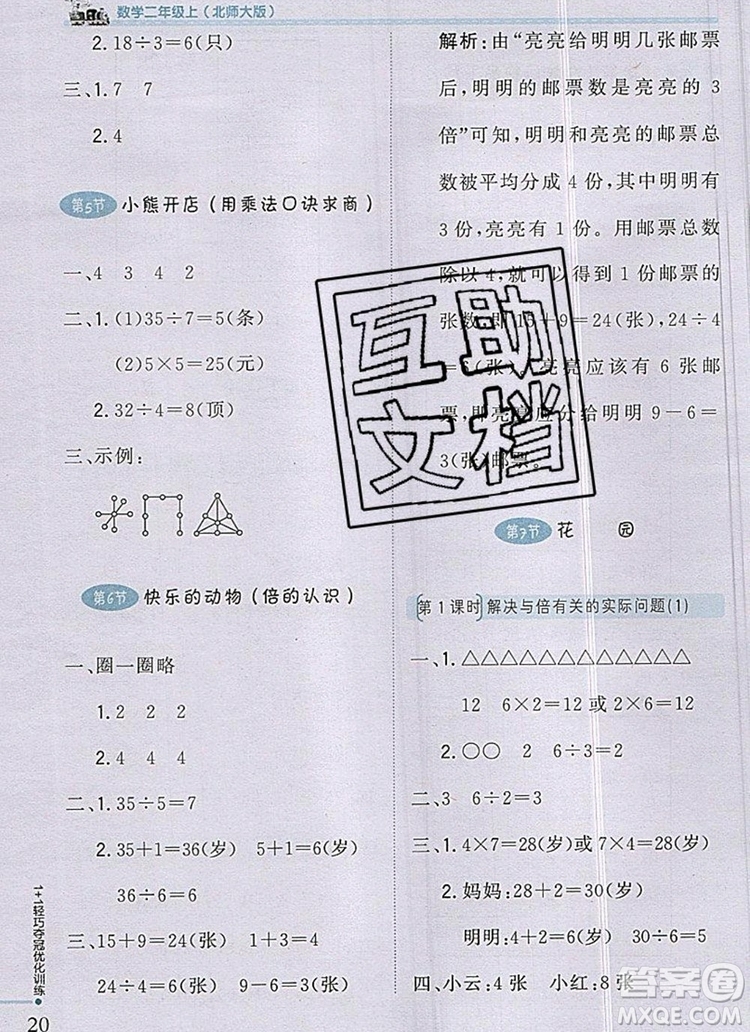 数学二年级上(北师大版)
2.18÷3=6(只)
三、1.7 7
2.4
第5节 小熊开店(用乘法口诀求商)
一、4 3 4 2
二、1.(1)35÷7=5(条)
(2)5×5=25(元)
2.32÷4=8(顶)
三、示例:
第6节 快乐的动物(倍的认识)
一、圈一圈略
1.2 2 2
2.4 4 4
二、1.35÷5=7
2.35+1=36(岁) 5+1=6(岁)
36÷6=6
三、15+9=24(张) 1+3=4
24÷4=6(张) 9-6=3(张)
1+1轻巧夺冠优化训练
20
解析:由“亮亮给明明几张邮票
后,明明的邮票数是亮亮的 3
倍”可知,明明和亮亮的邮票总
数被平均分成 4 份,明明有
3 份,亮亮有 1 份。用邮票总数
除以 4,就可以得到 1 份邮票的
张数,即 15+9=24(张),24÷4
=6(张)。亮亮应该有 6 张邮
票,即亮亮应分给明明 9-6=
3(张)邮票。
互助
文档
第7节 花 园
第1课时 解决与倍有关的实际问题(1)
一、1.△△△△△△△△△△△△
12 6×2=12 或 2×6=12
2.○○ 2 6÷3=2
二、3 6÷2=3
三、1.4×7=28(岁)或 7×4=28(岁)
2.妈妈:25+5=30(岁)
明明:1+5=6(岁) 30÷6=5
四、小云:4 张 小红:8 张
答案圈
MXQE.COM